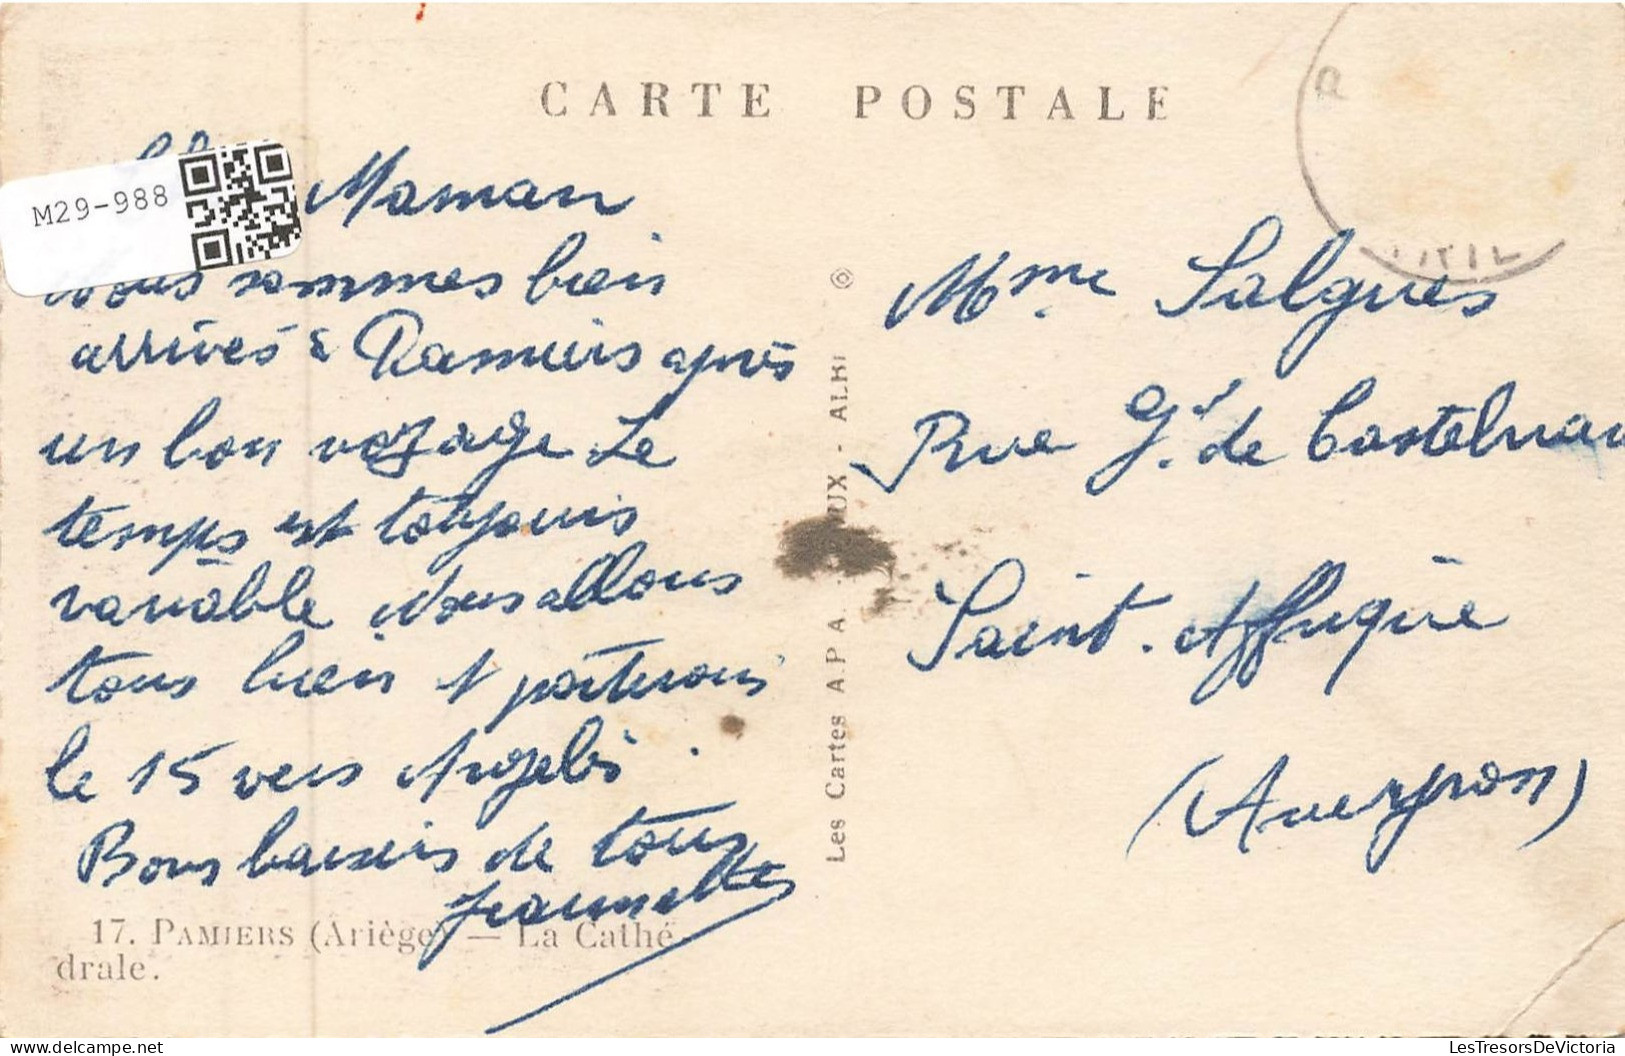 CARTE POSTALE
M29-988
Maman
Nous sommes bien
arrivés à Pamiers après
un bon voyage. Le
temps est toujours
variable. Nous allons
tous bien & partirons
le 15 vers Argelès.
Bons baisers de tous
Jeannette
17. PAMIERS (Ariège) — La Cathé-
drale.
Les Cartes A.P A - UX - ALBI
Mme Salgues
Rue Gl. de Castelnau
Saint-Affrique
(Aveyron)
LesTresorsDeVictoria
delcampe.net